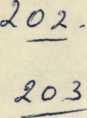 202.
203